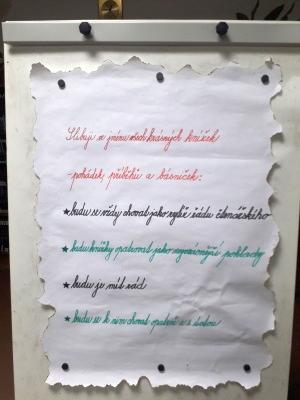 Slibuji ve jménu všech krásných knížek
- pohádek, příběhů a básniček:
★ budu se vždy chovat jako rytíř řádu čtenářského
★ budu knížky opatrovat jako nejvzácnější poklady
★ budu je mít rád
★ budu se k nim chovat opatrně a s láskou